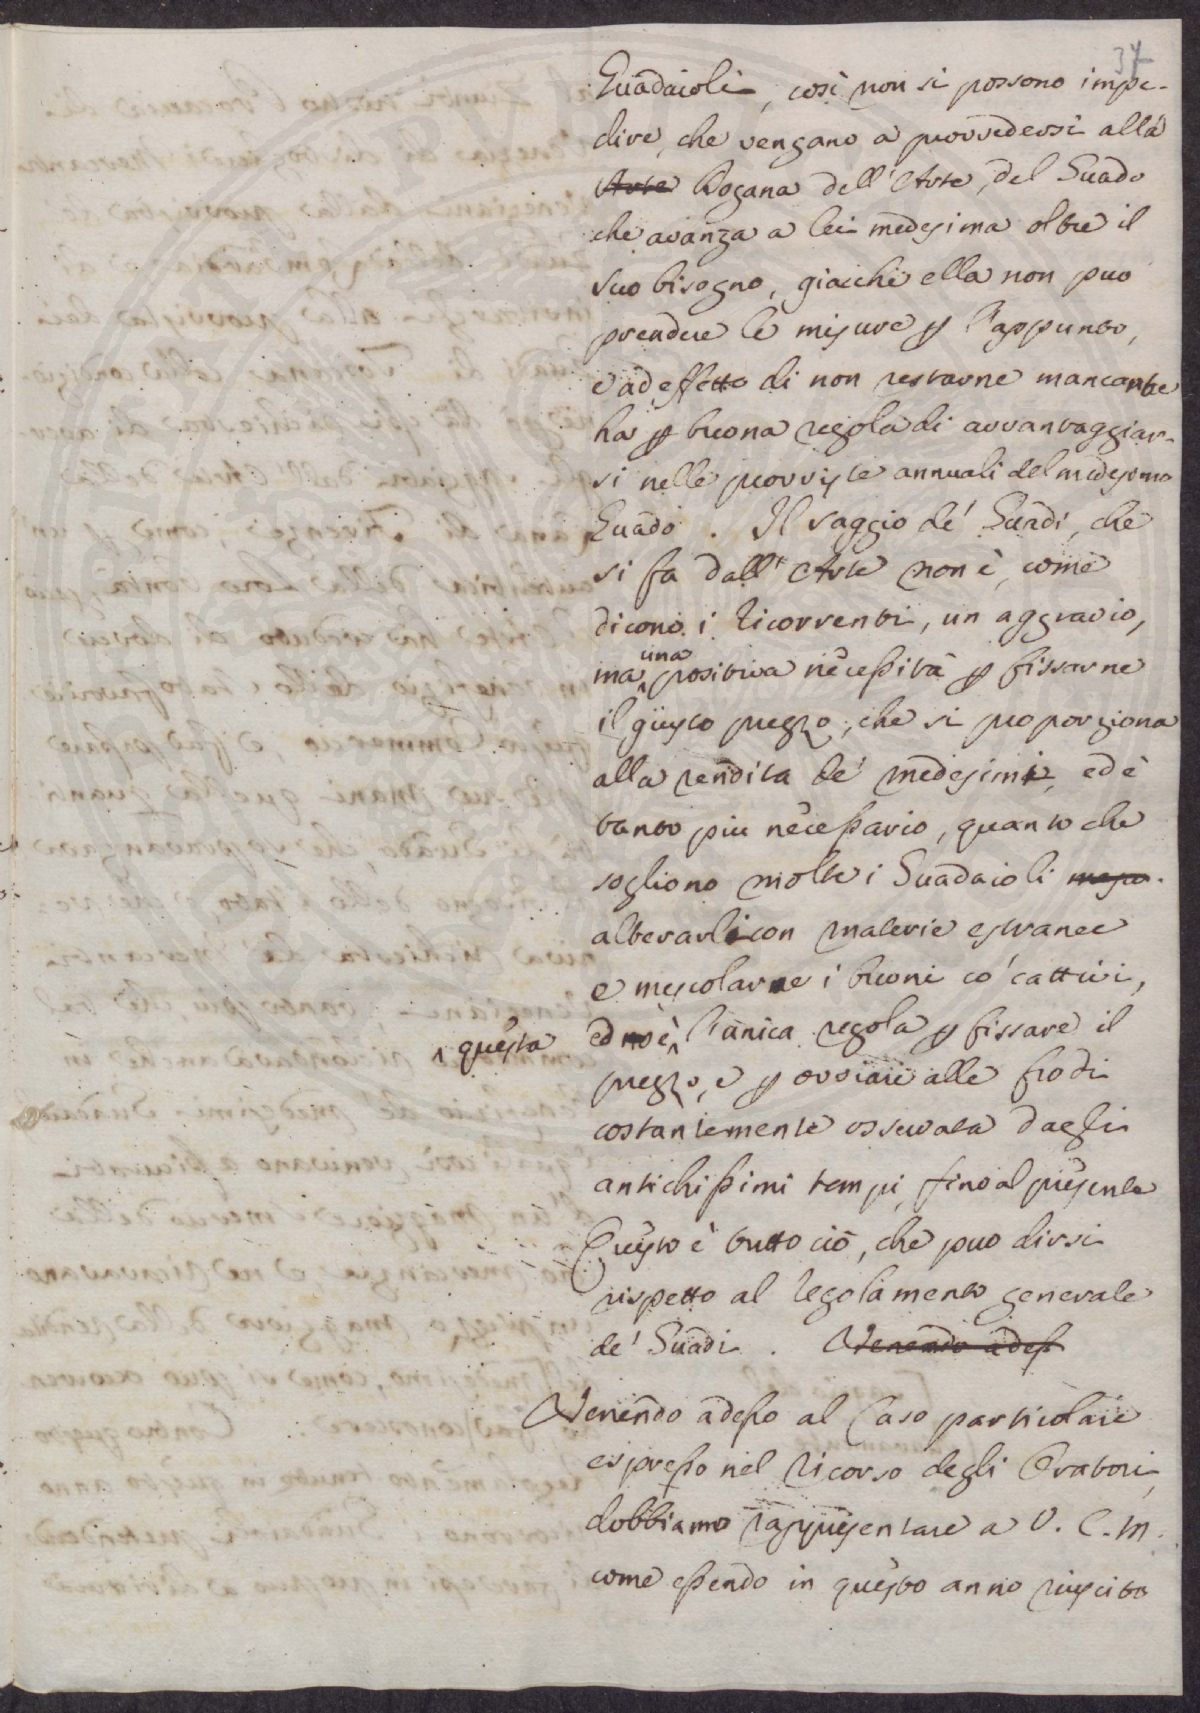 37
Guadaioli, così non si possono impe-
dire, che vengano a provvedersi alla
Arte Dogana dell'Arte, del Guado
che avanza a lei medesima oltre il
suo bisogno, giacchè ella non può
prendere le misure p l'appunto,
e ad effetto di non restarne mancante
ha p buona regola di avvantaggiar-
si nelle provviste annuali del medesimo
Guado. Il saggio de' Guadi, che
si fa dall'Arte non è, come
dicono i Ricorrenti, un aggravio,
ma una positiva necessità p fissarne
il giusto prezzo, che si proporziona
alla rendita de' medesimi, ed è
tanto più necessario, quanto che
sogliono molti Guadaioli
alterarli con materie estranee
e mescolarne i buoni co' cattivi,
ed è questa l'unica regola p fissare il
prezzo, e p ovviare alle frodi
costantemente osservata dagli
antichissimi tempi fino al presente
Questo è tutto ciò, che può dirsi
rispetto al Regolamento generale
de' Guadi. Venendo adess
Venendo adesso al Caso particolare
espresso nel Ricorso degli Oratori,
dobbiamo rappresentare a V. C. M.
come essendo in questo anno riuscito